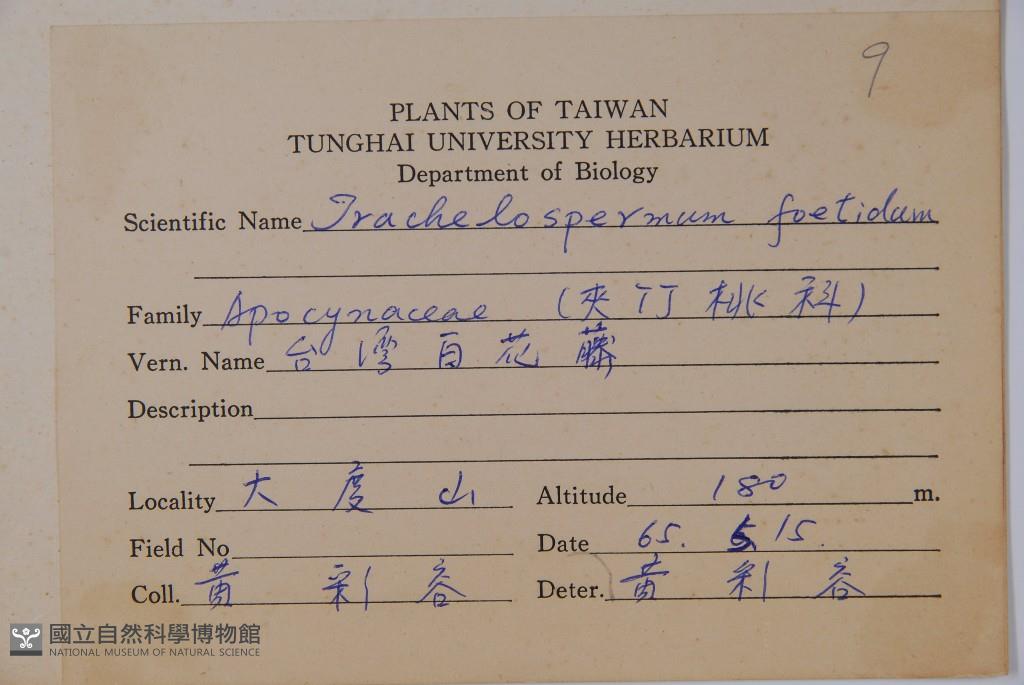 9
PLANTS OF TAIWAN
TUNGHAI UNIVERSITY HERBARIUM
Department of Biology
Scientific Name Trachelospermum foetidum
Family Apocynaceae (夾竹桃科)
Vern. Name 台湾白花藤
Description
Locality 大度山 Altitude 180 m.
Field No Date 65. 5. 15.
Coll. 黃彩容 Deter. 黃彩容
國立自然科學博物館
NATIONAL MUSEUM OF NATURAL SCIENCE